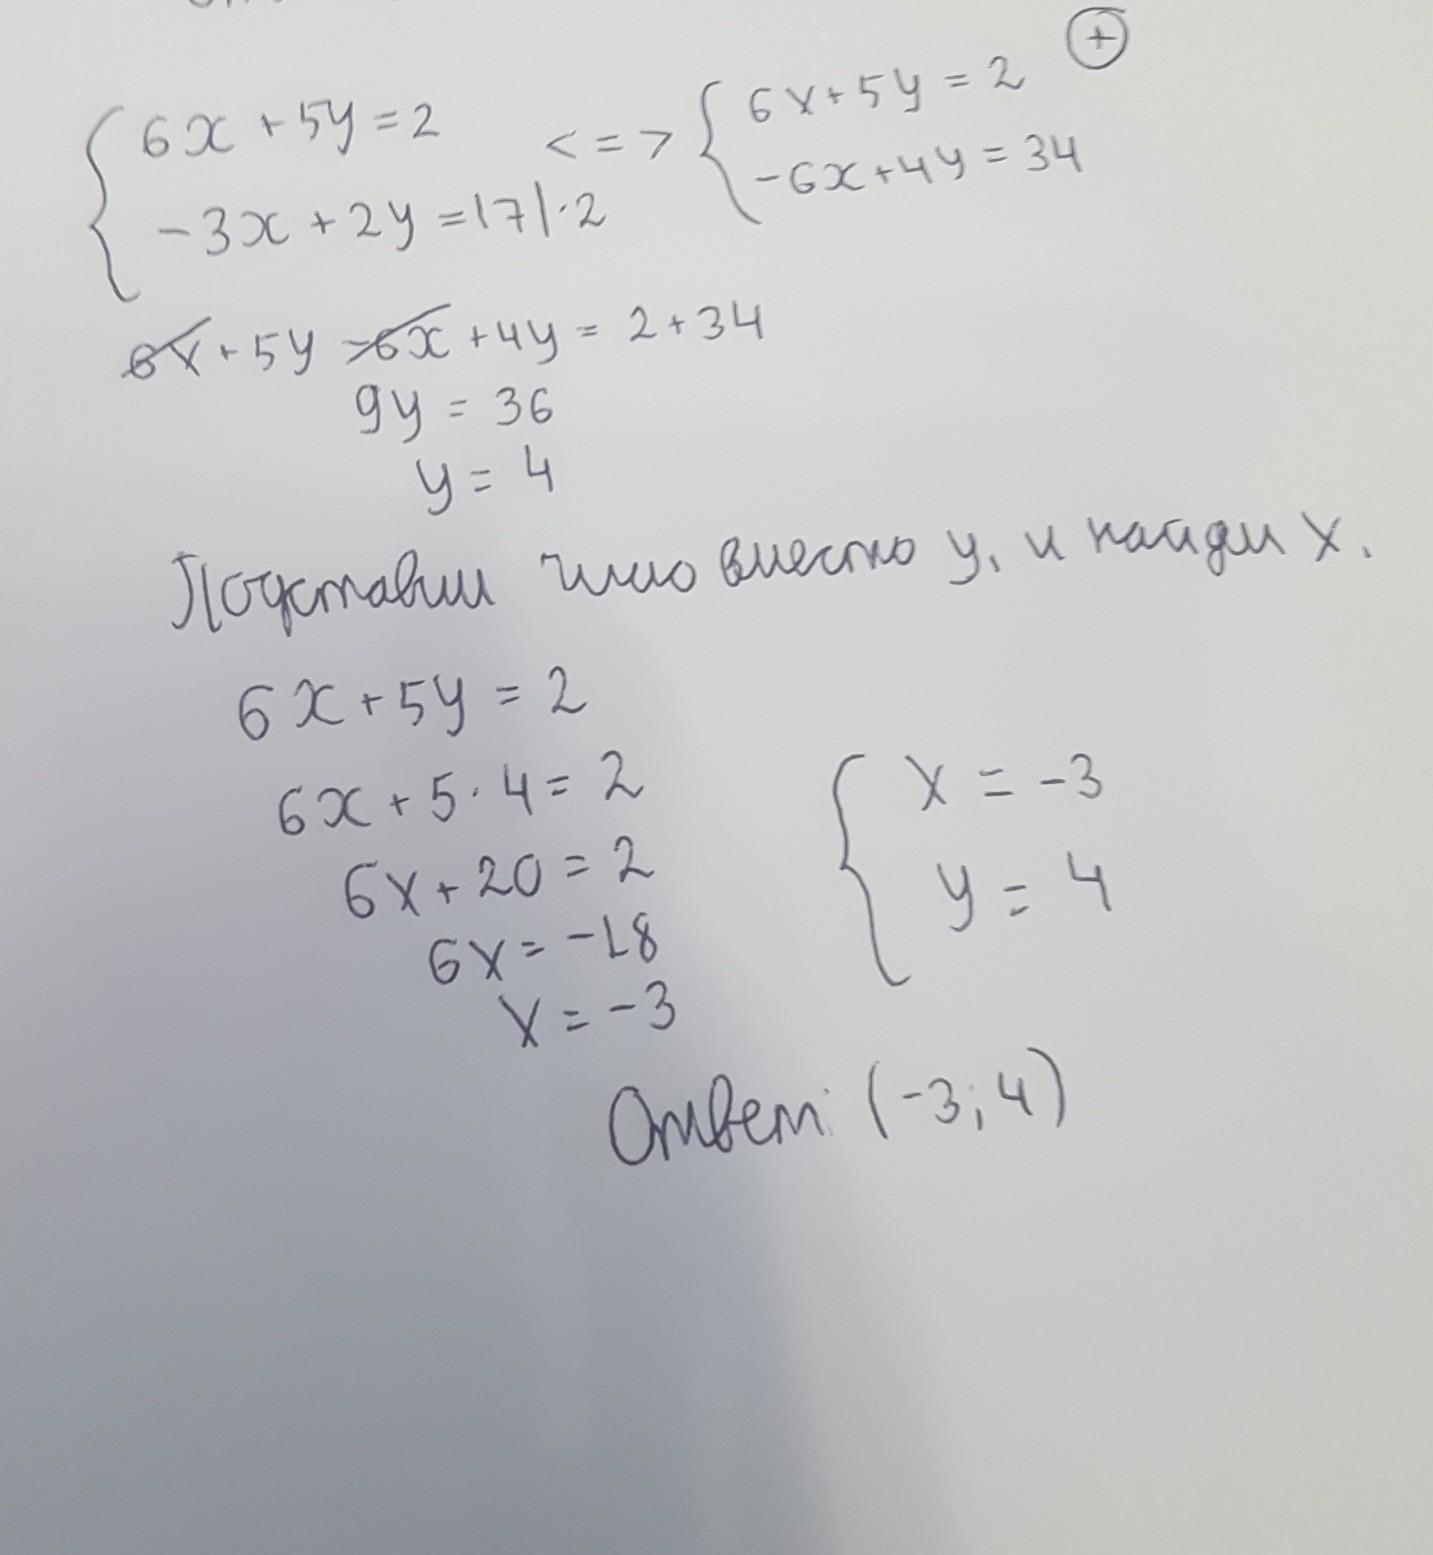 { 6x + 5y = 2 <=> { 6x + 5y = 2 ⊕
-3x + 2y = 17 | · 2 -6x + 4y = 34
6x + 5y - 6x + 4y = 2 + 34
9y = 36
y = 4
Подставим число вместо y, и найдём x.
6x + 5y = 2
6x + 5 · 4 = 2
6x + 20 = 2
6x = -18
x = -3
{ x = -3
y = 4
Ответ: (-3; 4)